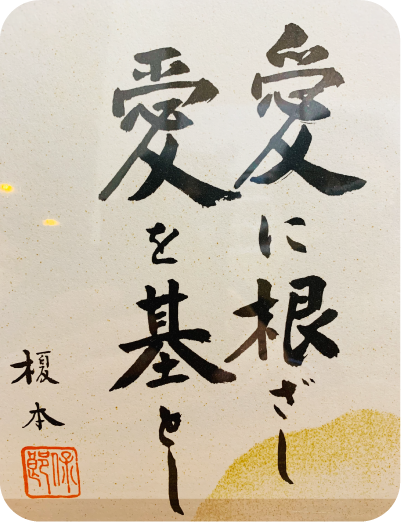 愛に根ざし
愛を基とし
榎本
保郎